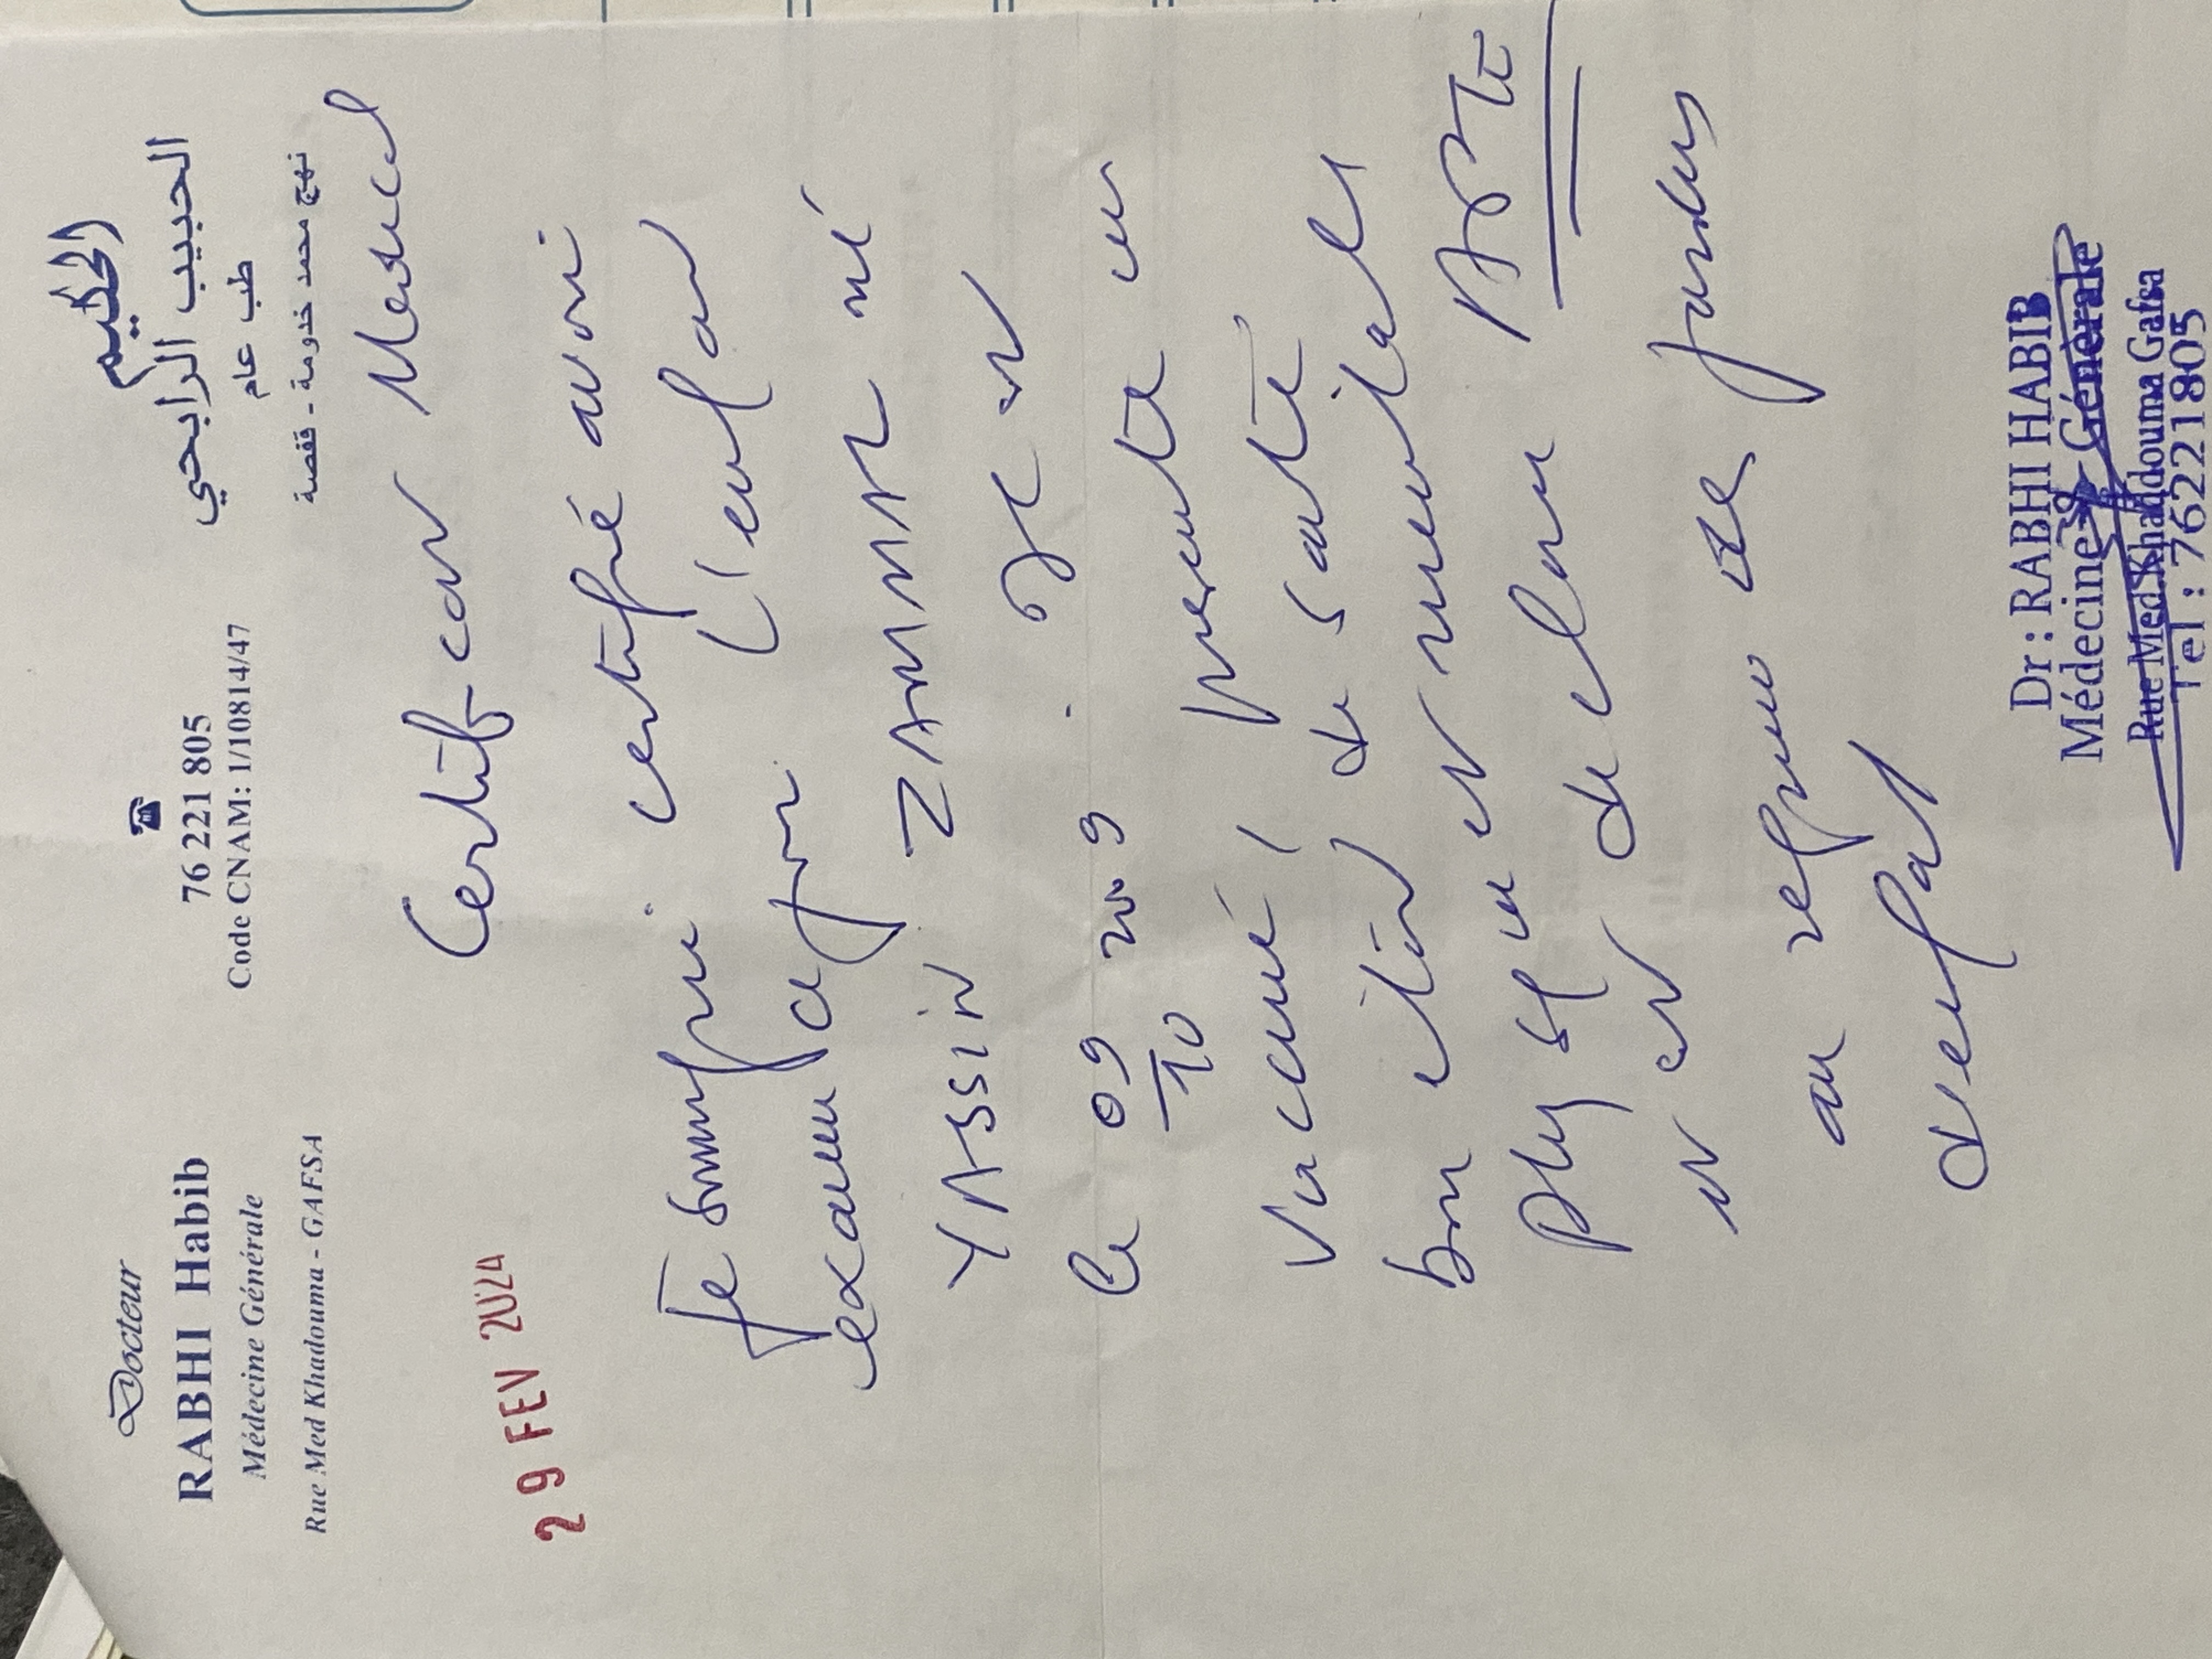 Docteur
RABHI Habib
Médecine Générale
Rue Med Khadouma - GAFSA
76 221 805
Code CNAM: 1/10814/47
الحكيم
الحبيب الرابحي
طب عام
نهج محمد خدومة - قفصة
29 FEV 2024
Certificat Medical
Je soussigné certifié avoir
examiné ce jour l'enfant
YASSIN ZAMMAL né
le 09/10 2009. Il est
vacciné, présente un
bon état de santé
physique et mentale
et est declaré APTE
au
d'enfant
Dr : RABHI HABIB
Médecine Générale
Rue Med.Khaddouma Gafsa
Tel : 76221805